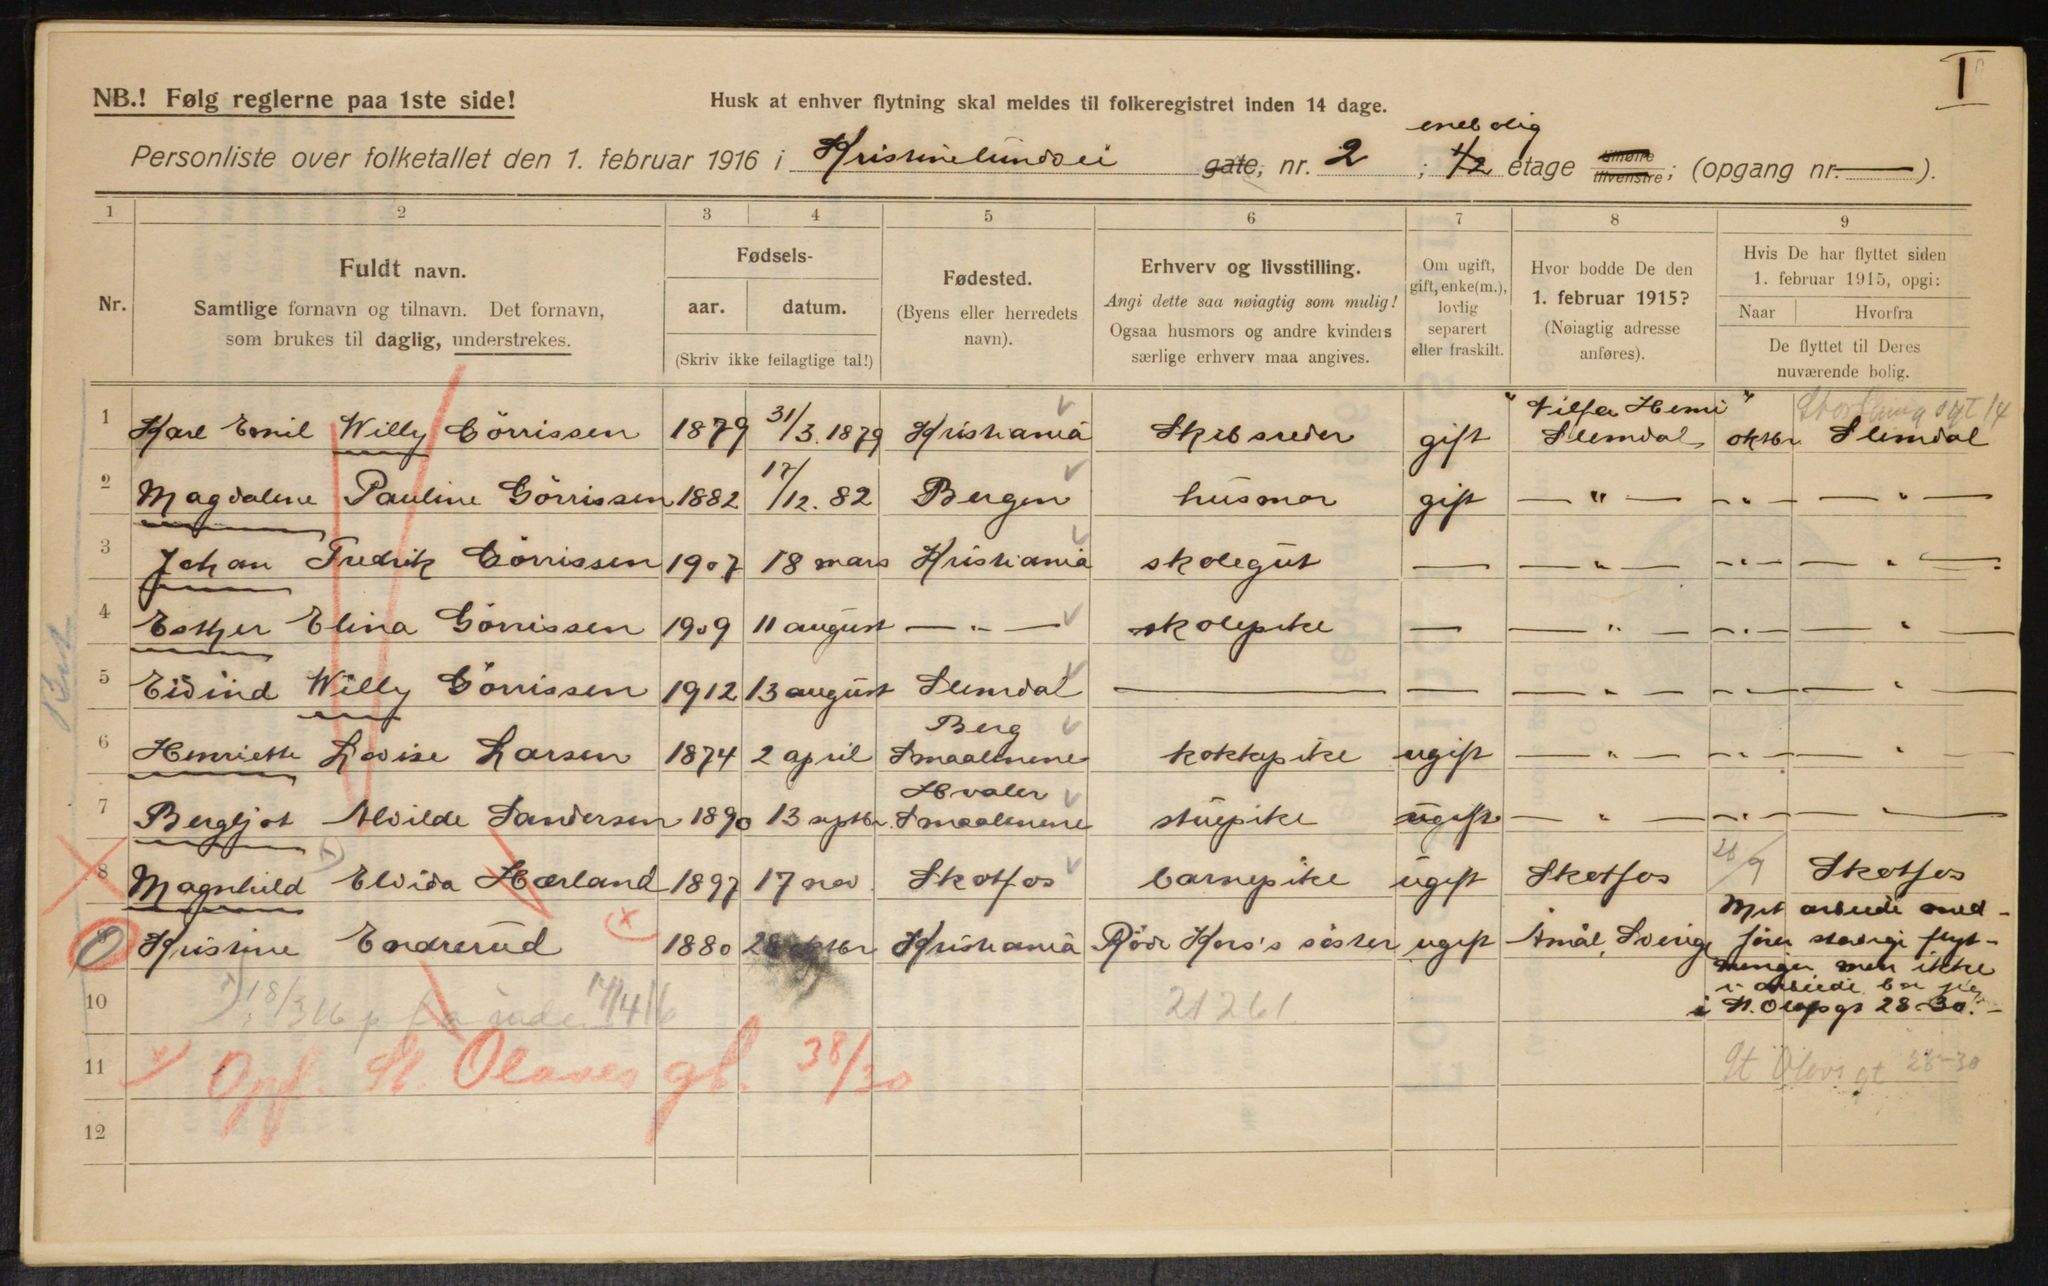 I
NB.! Følg reglerne paa 1ste side!
Husk at enhver flytning skal meldes til folkeregistret inden 14 dage.
enebolig
Personliste over folketallet den 1. februar 1916 i Kristinelundvei gate, nr. 2 ; 1/2 etage tilhøire tilvenstre; (opgang nr. — ).
1 2 3 4 5 6 7 8 9
Nr.
Fuldt navn.
Samtlige fornavn og tilnavn. Det fornavn,
som brukes til daglig, understrekes.
Fødsels-
aar. datum.
(Skriv ikke feilagtige tal!)
Fødested.
(Byens eller herredets
navn).
Erhverv og livsstilling.
Angi dette saa nøiagtig som mulig!
Ogsaa husmors og andre kvinders
særlige erhverv maa angives.
Om ugift,
gift, enke(m.),
lovlig
separert
eller fraskilt.
Hvor bodde De den
1. februar 1915?
(Nøiagtig adresse
anføres).
Hvis De har flyttet siden
1. februar 1915, opgi:
Naar Hvorfra
De flyttet til Deres
nuværende bolig.
1 Karl Emil Willy Görrissen 1879 31/3. 1879 Kristiania Skibsreder gift "Vilfer Hemi" Slemdal oktbr Slemdal
2 Magdalene Pauline Görrissen 1882 17/12. 82 Bergen husmor gift — " — — " — — " —
3 Johan Fredrik Görrissen 1907 18 mars Kristiania skolegut — — " — — " — — " —
4 Esther Elina Görrissen 1909 11 august — " — skolepike — — " — — " — — " —
5 Eivind Willy Görrissen 1912 13 august Slemdal — — — " — — " — — " —
6 Henriette Lovise Larsen 1874 2 april Berg Smaalenene kokkepike ugift — " — — " — — " —
7 Bergljot Alvilde Sandersen 1890 13 septbr. Hvaler Smaalenene stuepike ugift — " — — " — — " —
8 Magnhild Elvida Hærland 1897 17 nov. Skotfos barnepike ugift Skotfos 28/9 Skotfos
9 Kristine Endrerud 1880 28 oktbr Kristiania Röde Kors's söster ugift Åmål, Sverige
Mit arbeide med-
fører stadige flyt-
ninger, men ikke
i arbeide bor jeg
i St. Olafsgt 28-30.
10 18/3 16 17/4 16 21261
11 Opf. St. Olaves gt. 38/30
St Olavs gt 28-30
12